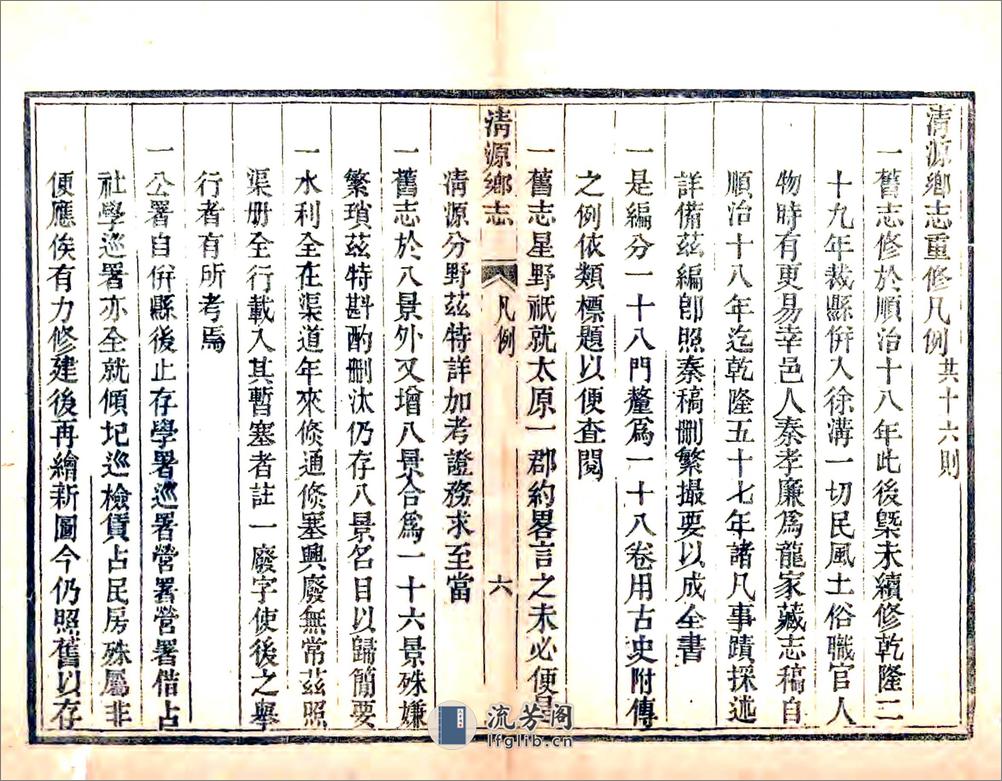 清源鄉志重修凡例共十六則
一舊志修於順治十八年此後槩未續修乾隆二
十九年裁縣併入徐溝一切民風土俗職官人
物時有更易幸邑人秦孝廉爲龍家藏志稿自
順治十八年迄乾隆五十七年諸凡事蹟採述
詳備茲編卽照秦稿刪繁撮要以成全書
一是編分一十八門釐爲一十八卷用古史附傳
之例依類標題以便查閱
清源鄉志 凡例 六
一舊志星野祇就太原一郡約畧言之未必便是
淸源分野茲特詳加考證務求至當
一舊志於八景外又增八景合爲一十六景殊嫌
繁瑣茲特斟酌刪汰仍存八景名目以歸簡要
一水利全在渠道年來倐通倐塞興廢無常茲照
渠册全行載入其暫塞者註一廢字使後之舉
行者有所考焉
一公署自併縣後止存學署巡署營署營署借占
社學巡署亦全就傾圮巡檢賃占民房殊屬非
便應俟有力修建後再繪新圖今仍照舊以存
流芳阁
lfglib.cn